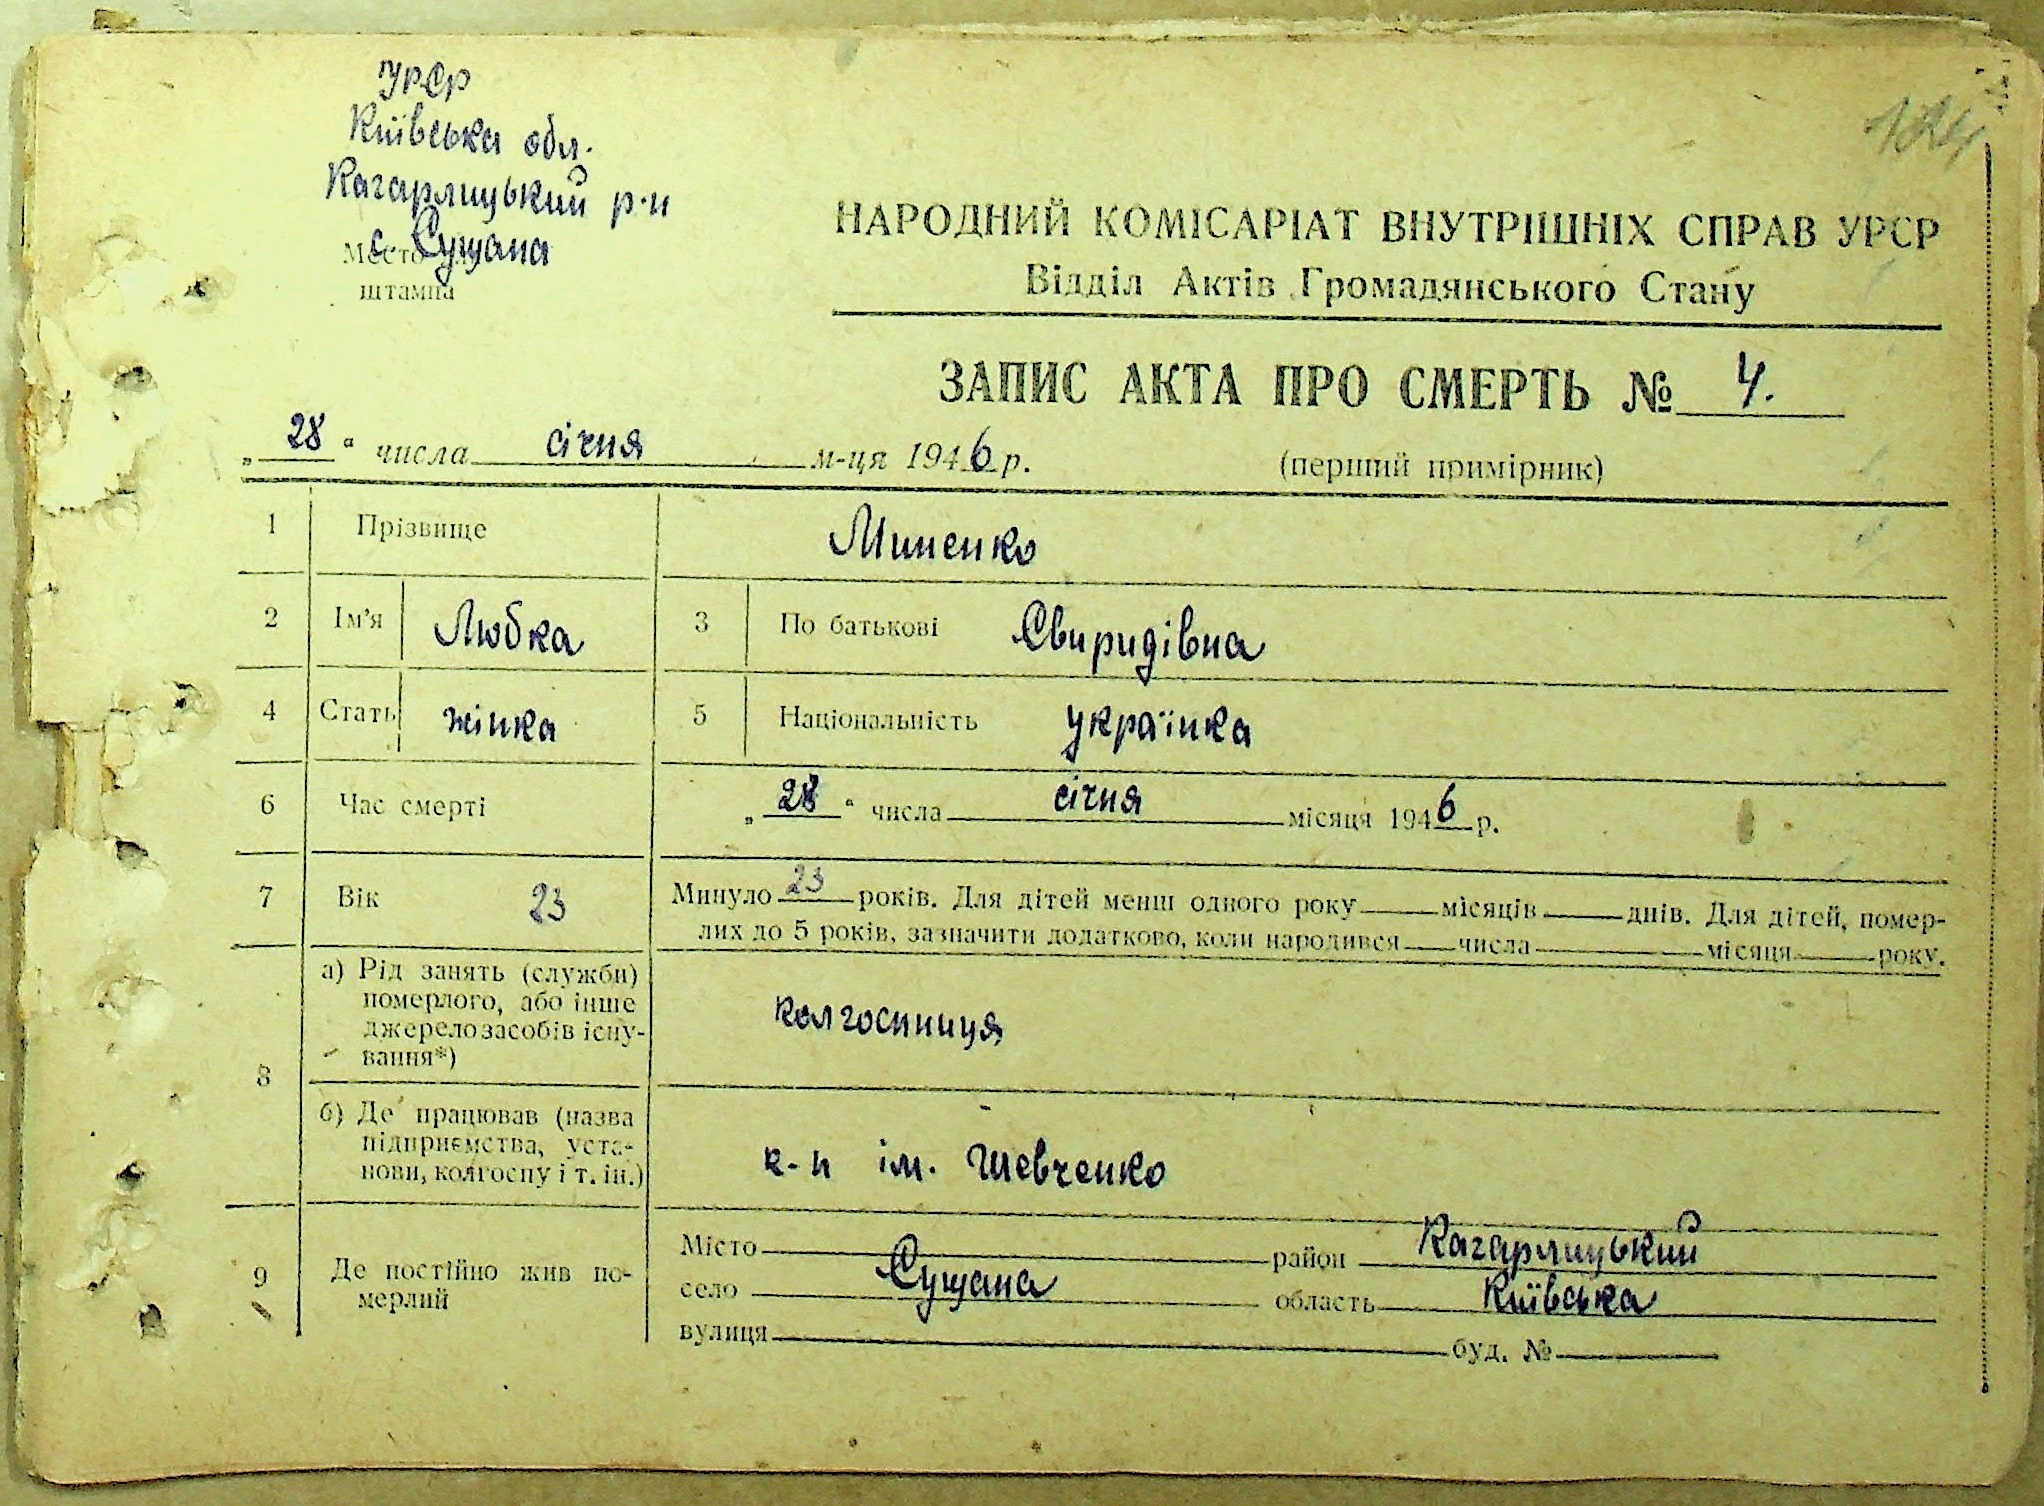 УРСР
Київська обл.
Кагарлицький р-н
с. Сущана
Место
штампа
НАРОДНИЙ КОМІСАРІАТ ВНУТРІШНІХ СПРАВ УРСР
Відділ Актів Громадянського Стану
ЗАПИС АКТА ПРО СМЕРТЬ № 4.
„28“ числа січня м-ця 1946 р.
(перший примірник)
1 Прізвище Миненко
2 Ім'я Любка 3 По батькові Свиридівна
4 Стать жінка 5 Національність українка
6 Час смерті „28“ числа січня місяця 1946 р.
7 Вік 23 Минуло 23 років. Для дітей менш одного року місяців днів. Для дітей, помер-
лих до 5 років, зазначити додатково, коли народився числа місяця року.
8 а) Рід занять (служби)
померлого, або інше
джерело засобів існу-
вання*)
колгоспниця
б) Де працював (назва
підприємства, уста-
нови, колгоспу і т. ін.)
к-п ім. Шевченко
9 Де постійно жив по-
мерлий
Місто район Кагарлицький
село Сущана область Київська
вулиця буд. №